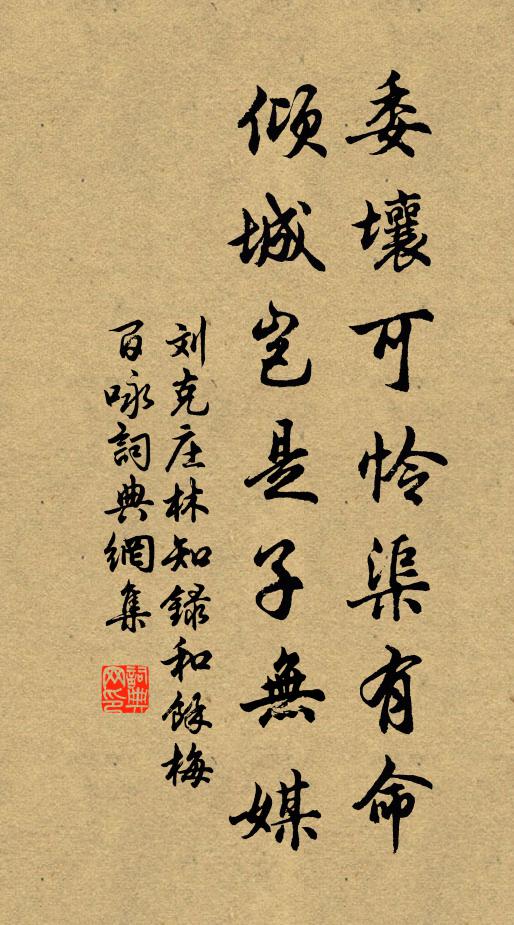 委壤可怜渠有命
倾城岂是子無媒
刘克庄林知録和餘梅
百咏詞典網集
詞典
网印